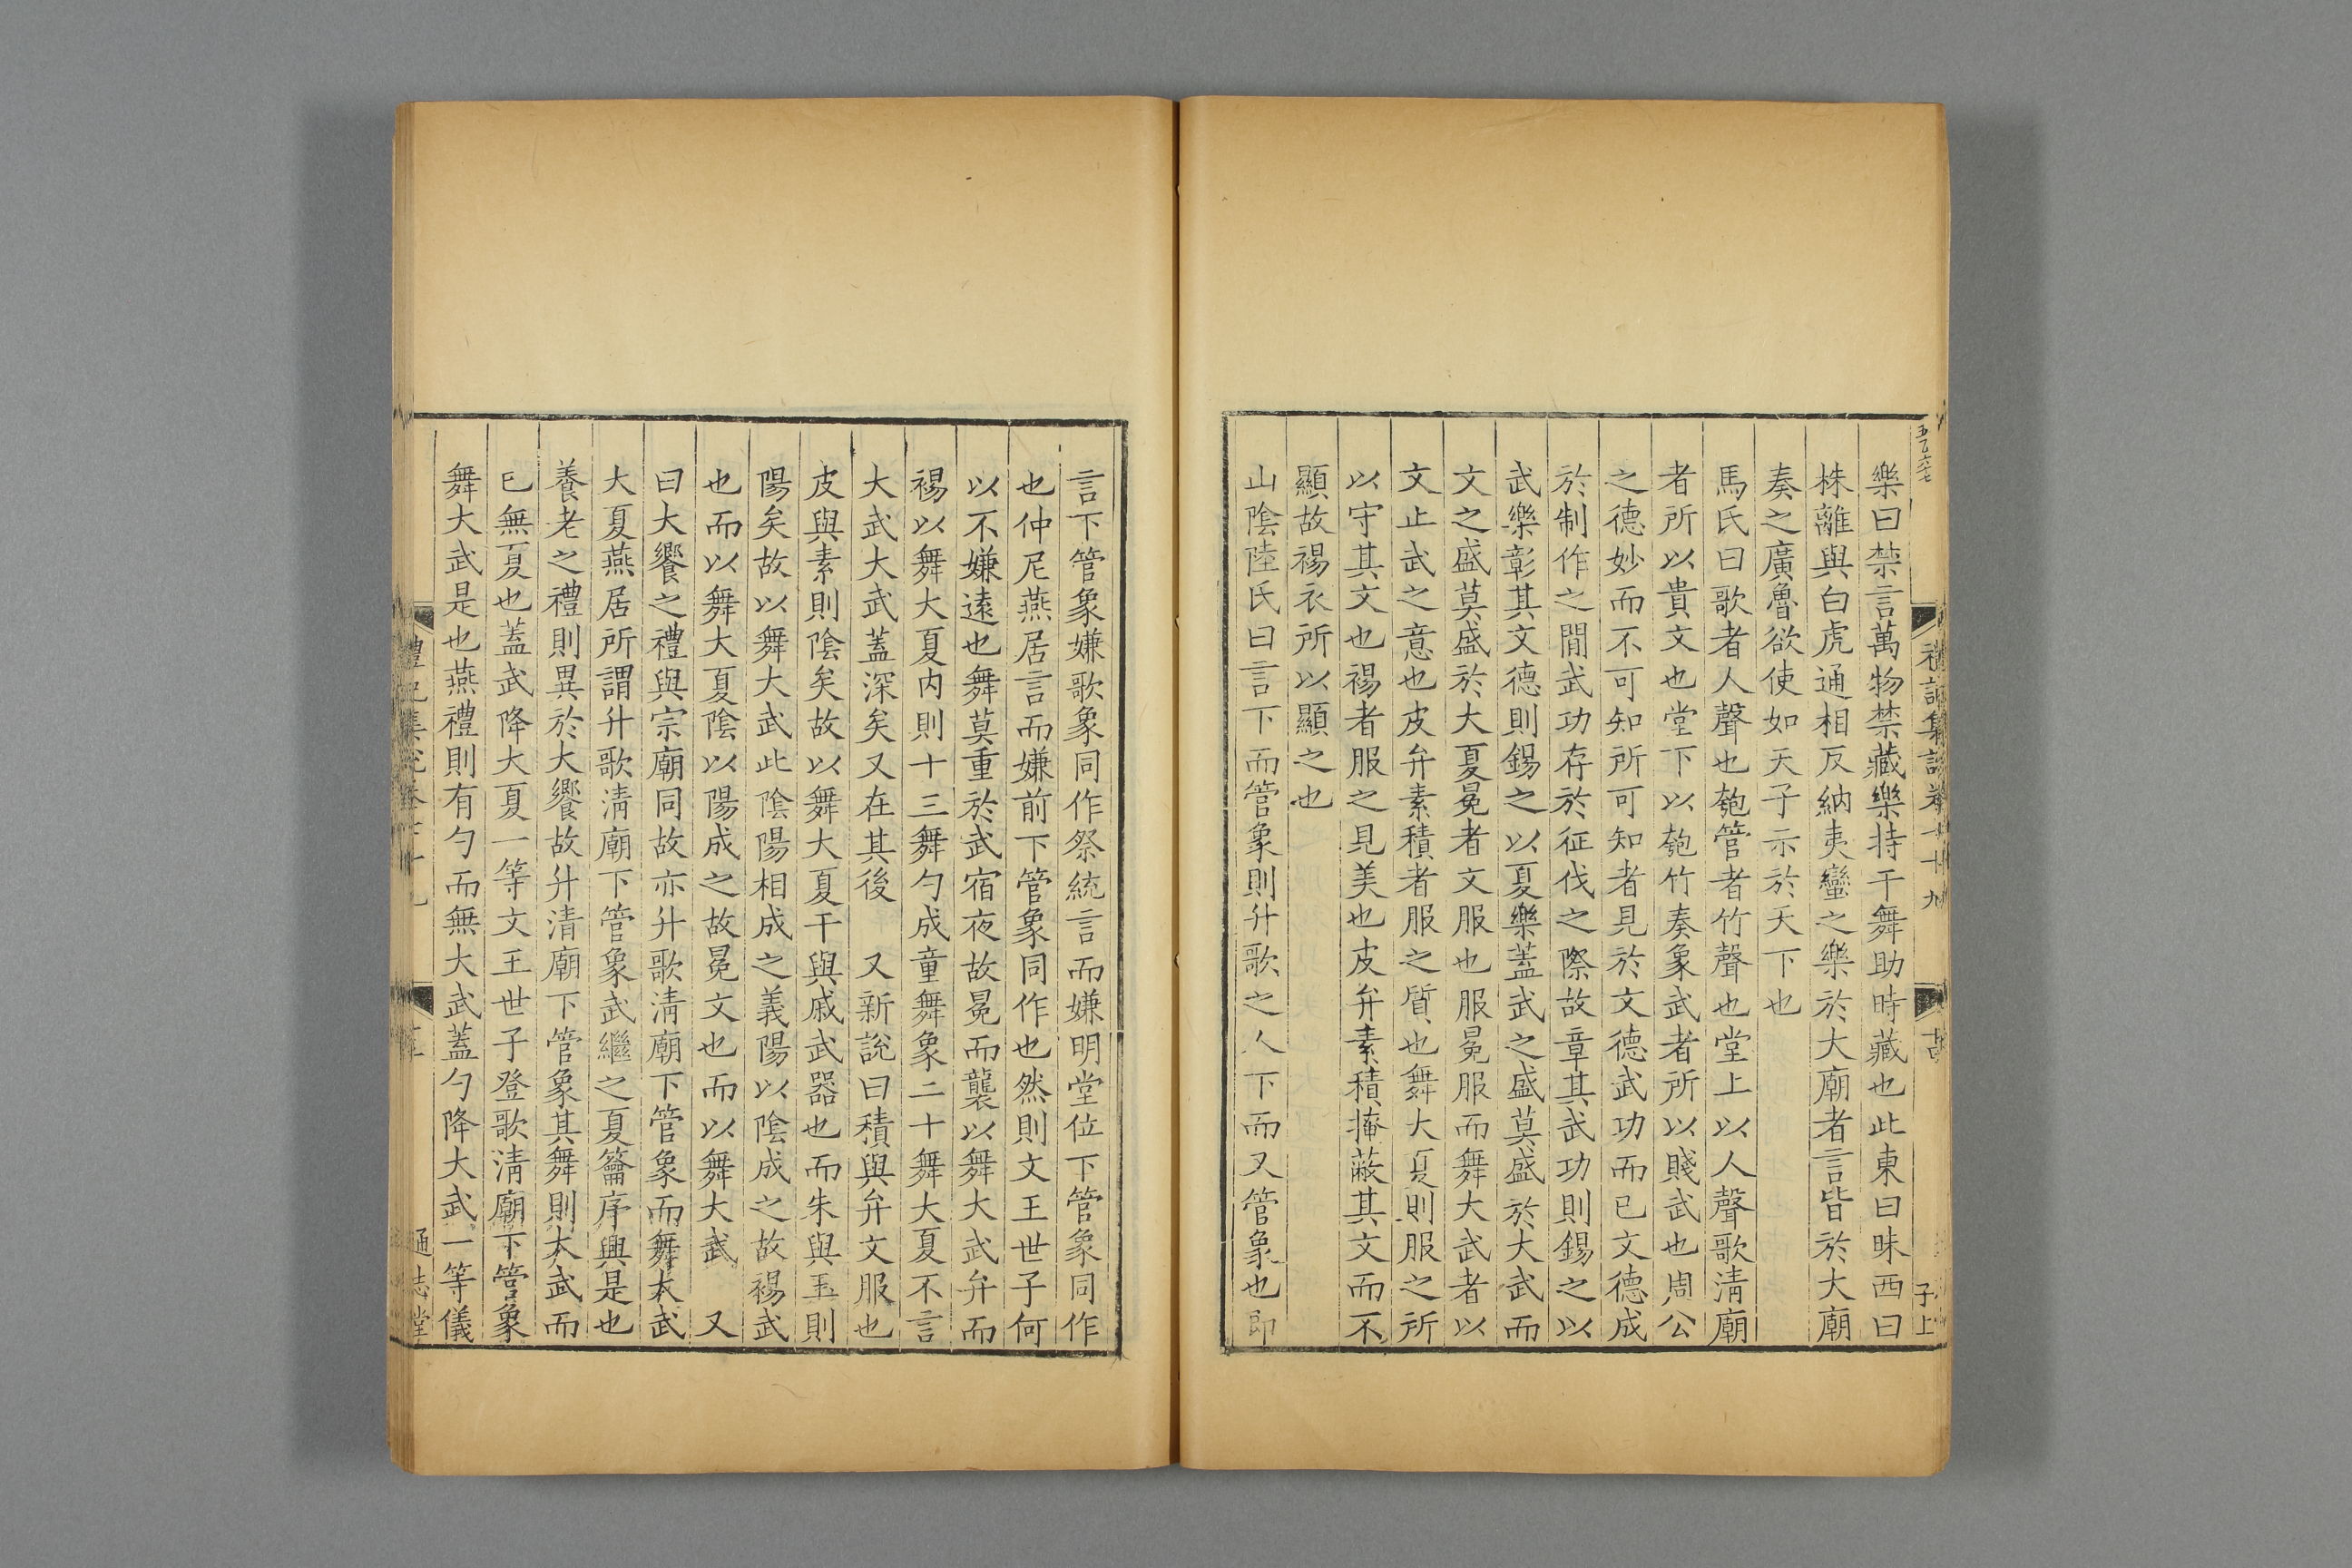 樂曰禁言萬物禁藏樂持干舞助時藏也此東曰昧西曰
株離與白虎通相反納夷蠻之樂於大廟者言皆於大廟
奏之廣魯欲使如天子示於天下也
馬氏曰歌者人聲也匏管者竹聲也堂上以人聲歌清廟
者所以貴文也堂下以匏竹奏象武者所以賤武也周公
之德妙而不可知所可知者見於文德武功而已文德成
於制作之間武功存於征伐之際故章其武功則錫之以
武樂彰其文德則錫之以夏樂蓋武之盛莫盛於大武而
文之盛莫盛於大夏冕者文服也服冕服而舞大武者以
文止武之意也皮弁素積者服之質也舞大夏則服之所
以守其文也裼者服之見美也皮弁素積掩蔽其文而不
顯故裼衣所以顯之也
山陰陸氏曰言下而管象則升歌之人下而又管象也即
言下管象嫌歌象同作祭統言而嫌明堂位下管象同作
也仲尼燕居言而嫌前下管象同作也然則文王世子何
以不嫌遠也舞莫重於武宿夜故冕而襲以舞大武弁而
裼以舞大夏內則十三舞勺成童舞象二十舞大夏不言
大武大武蓋深矣又在其後 又新說曰積與弁文服也
皮與素則陰矣故以舞大夏干與戚武器也而朱與玉則
陽矣故以舞大武此陰陽相成之義陽以陰成之故裼武
也而以舞大夏陰以陽成之故冕文也而以舞大武 又
曰大饗之禮與宗廟同故亦升歌清廟下管象而舞大武
大夏燕居所謂升歌清廟下管象武繼之夏籥序興是也
養老之禮則異於大饗故升清廟下管象其舞則大武而
已無夏也蓋武降大夏一等文王世子登歌清廟下管象
舞大武是也燕禮則有勺而無大武蓋勺降大武一等儀
通志堂